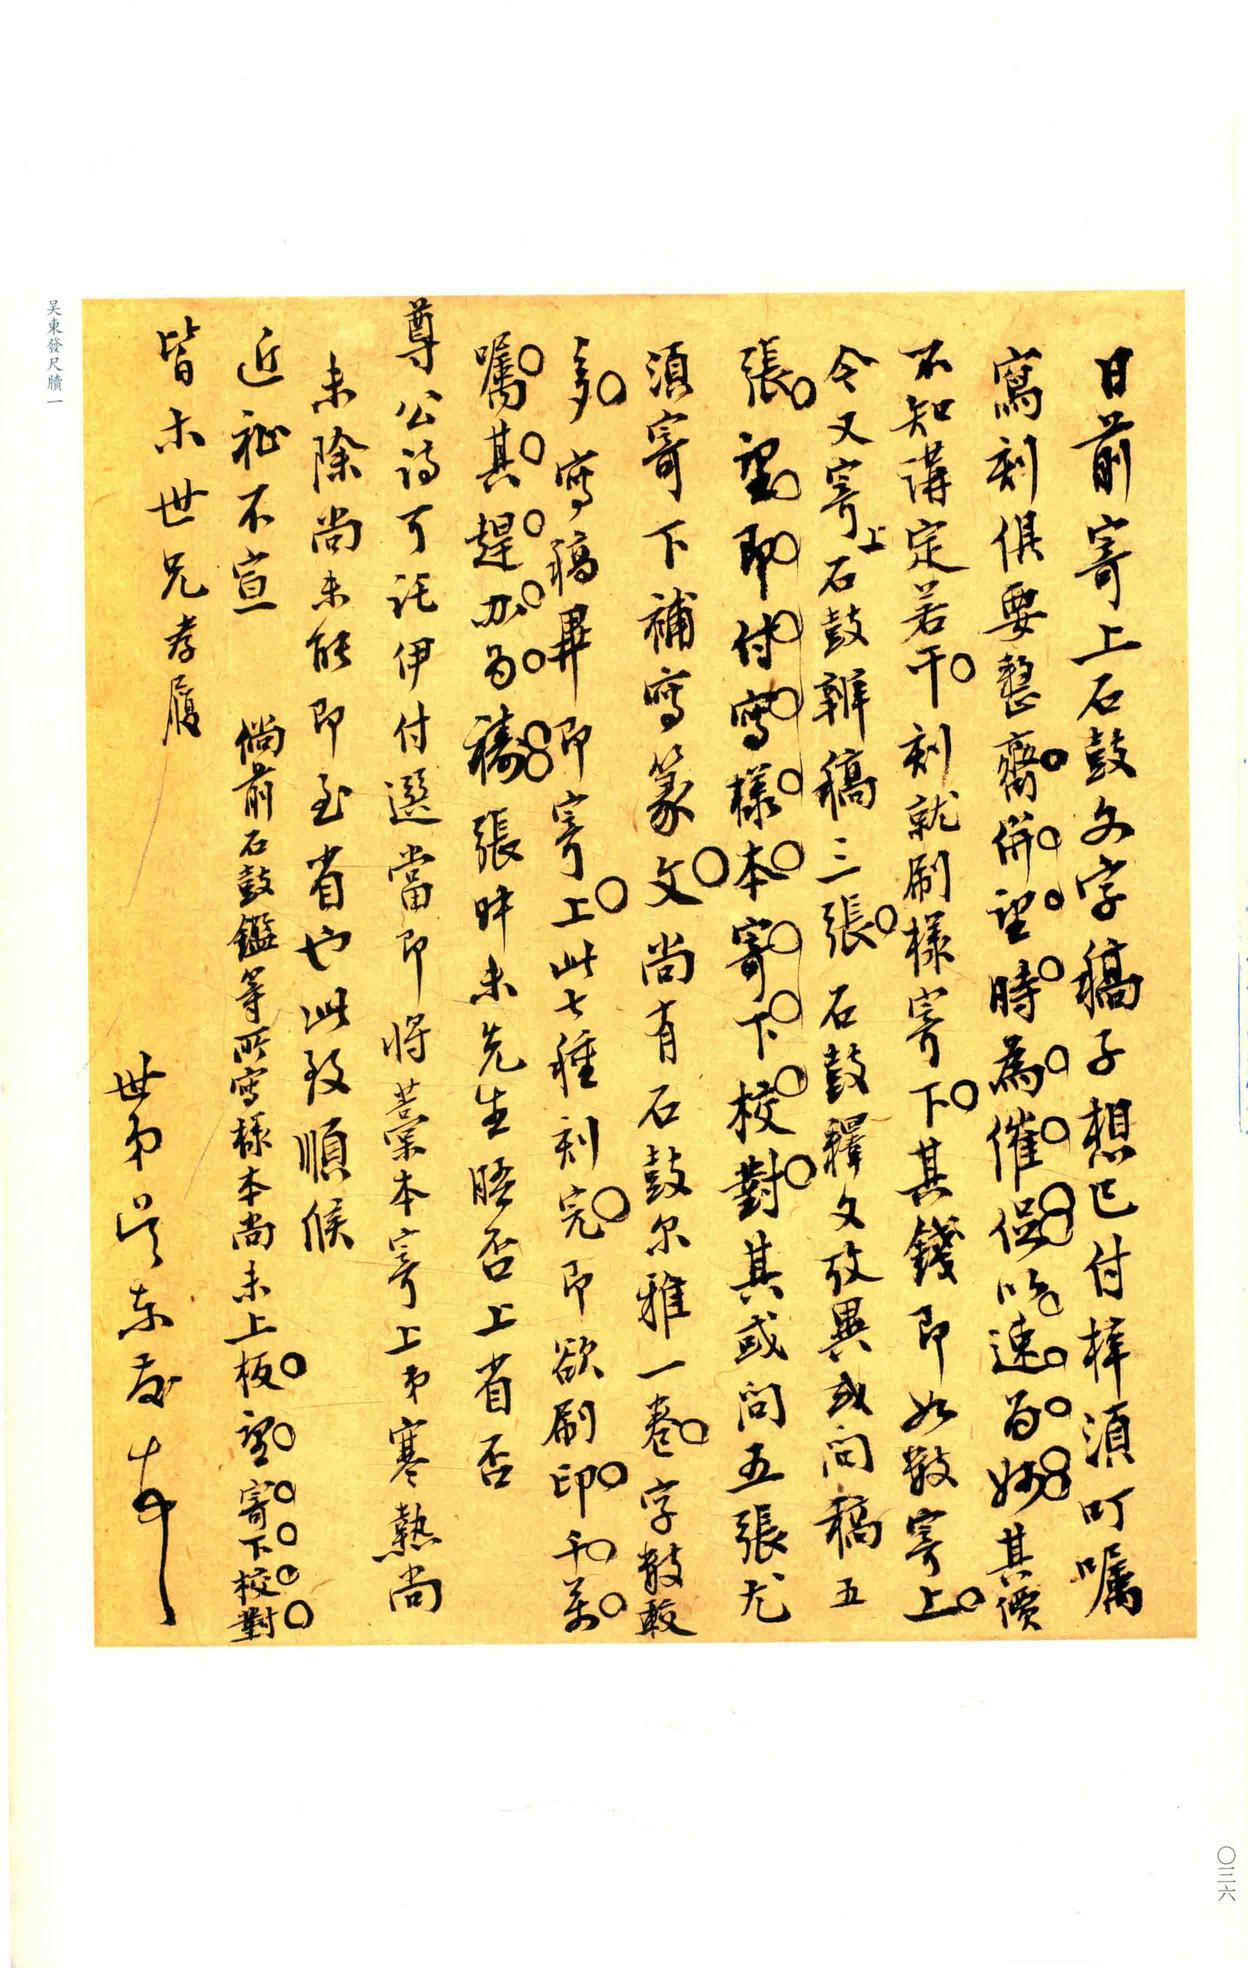 日前寄上石鼓文字稿子想已付梓須叮囑
寫刻俱要整齊併望時為催促以速為妙其價
不知講定若干刻就刷樣寄下其錢即如數寄上
今又寄上石鼓辨稿三張石鼓釋文攷異或問稿五
張望即付寫樣本寄下校對其或問五張尤
須寄下補寫篆文尚有石鼓尔雅一卷字數敢
多寫稿畢即寄上此七種刻完即欲刷印千萬
囑其趕办為禱張叶未先生晤否上省否
尊公詩可託伊付選當即將藁本寄上弟寒熱尚
未除尚未能即至省也此致順候
近祉不宣
倘前石鼓鑑等所寫樣本尚未上板望寄下校對
皆木世兄孝履
世弟吳東發
吴東發尺牘一
〇三六